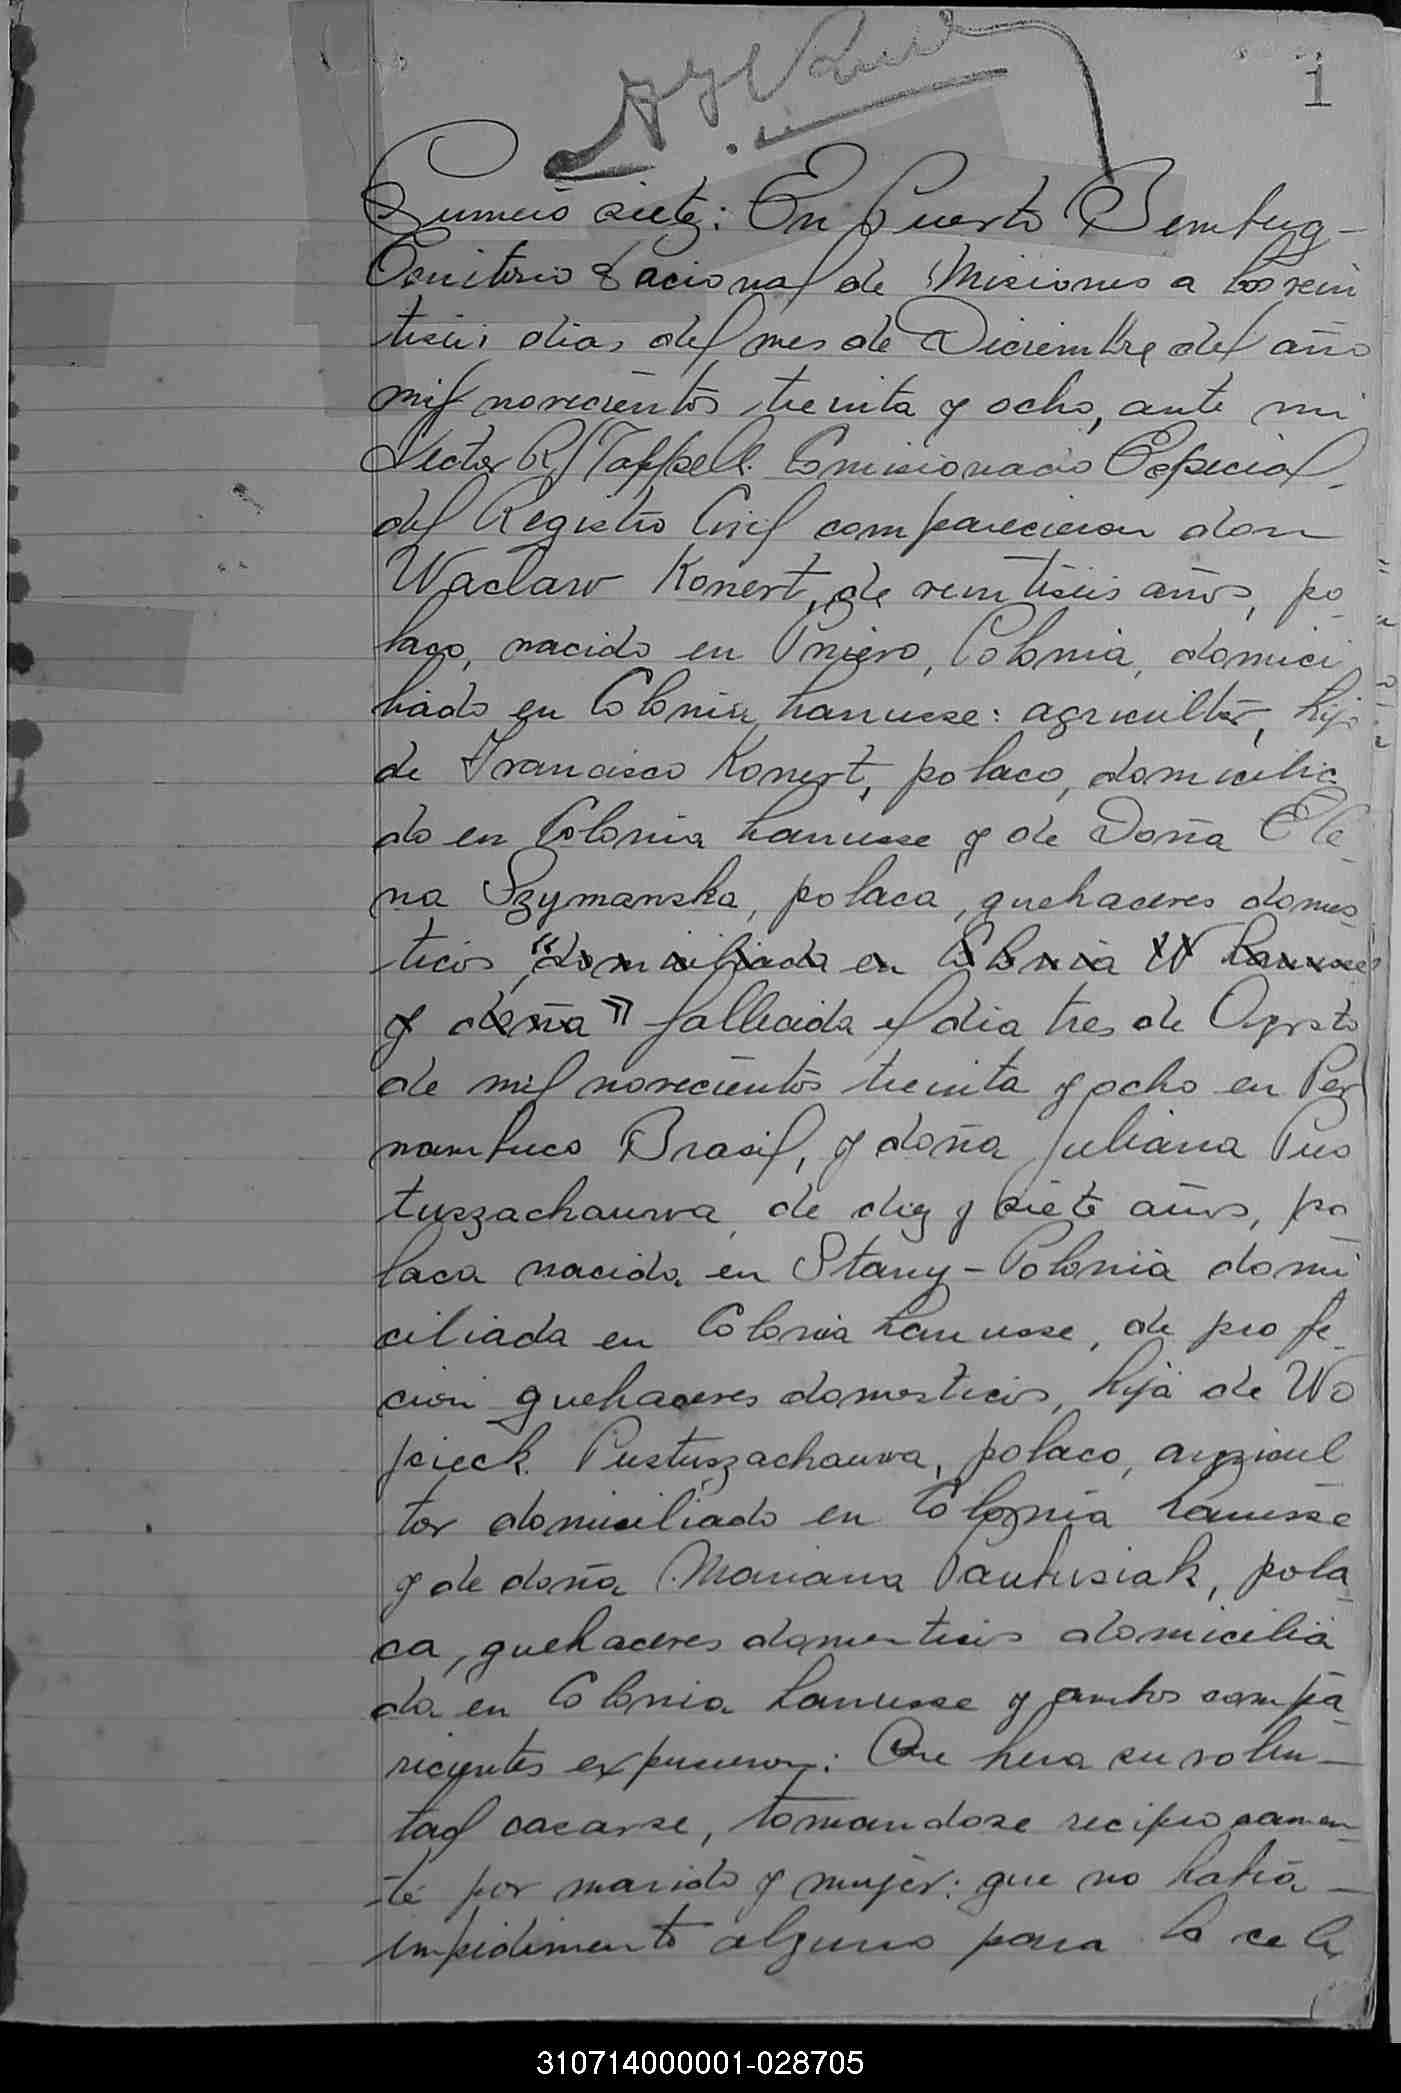 1
Numero siete: En Puerto Bemberg-
Territorio Nacional de Misiones a los vein
tiseis dias del mes de Diciembre del año
mil novecientos treinta y ocho, ante mi
Hector R. Comisionado Especial
del Registro Civil comparecieron don
Waclaw Konert, de veintiseis años, po-
laco, nacido en Pniewo, Polonia, domici
liado en Colonia Lanusse: agricultor, hijo
de Francisco Konert, polaco, domicilia
do en Colonia Lanusse y de Doña Ele-
na Szymanska, polaca, quehaceres domes
ticos, "domiciliada en Colonia W Lanusse
y doña" fallecida el dia tres de Agosto
de mil novecientos treinta y ocho en Per
nambuco Brasil, y doña Juliana Pus
tuszachauwa, de diez y siete años, po
laca nacida en Stany-Polonia domi
ciliada en Colonia Lanusse, de profe-
cion quehaceres domesticos, hija de Wo
jcieck Pustuszachauwa, polaco, agricul
tor domiciliado en Colonia Lanusse
y de doña Mariana Pantusiak, pola-
ca, quehaceres domesticos domicilia
da en Colonia Lanusse y ambos compa-
recientes expusieron: Que hera su volun-
tad casarse, tomandose reciprocamen-
te por marido y mujer: que no habia-
impedimento alguno para la cele
310714000001-028705